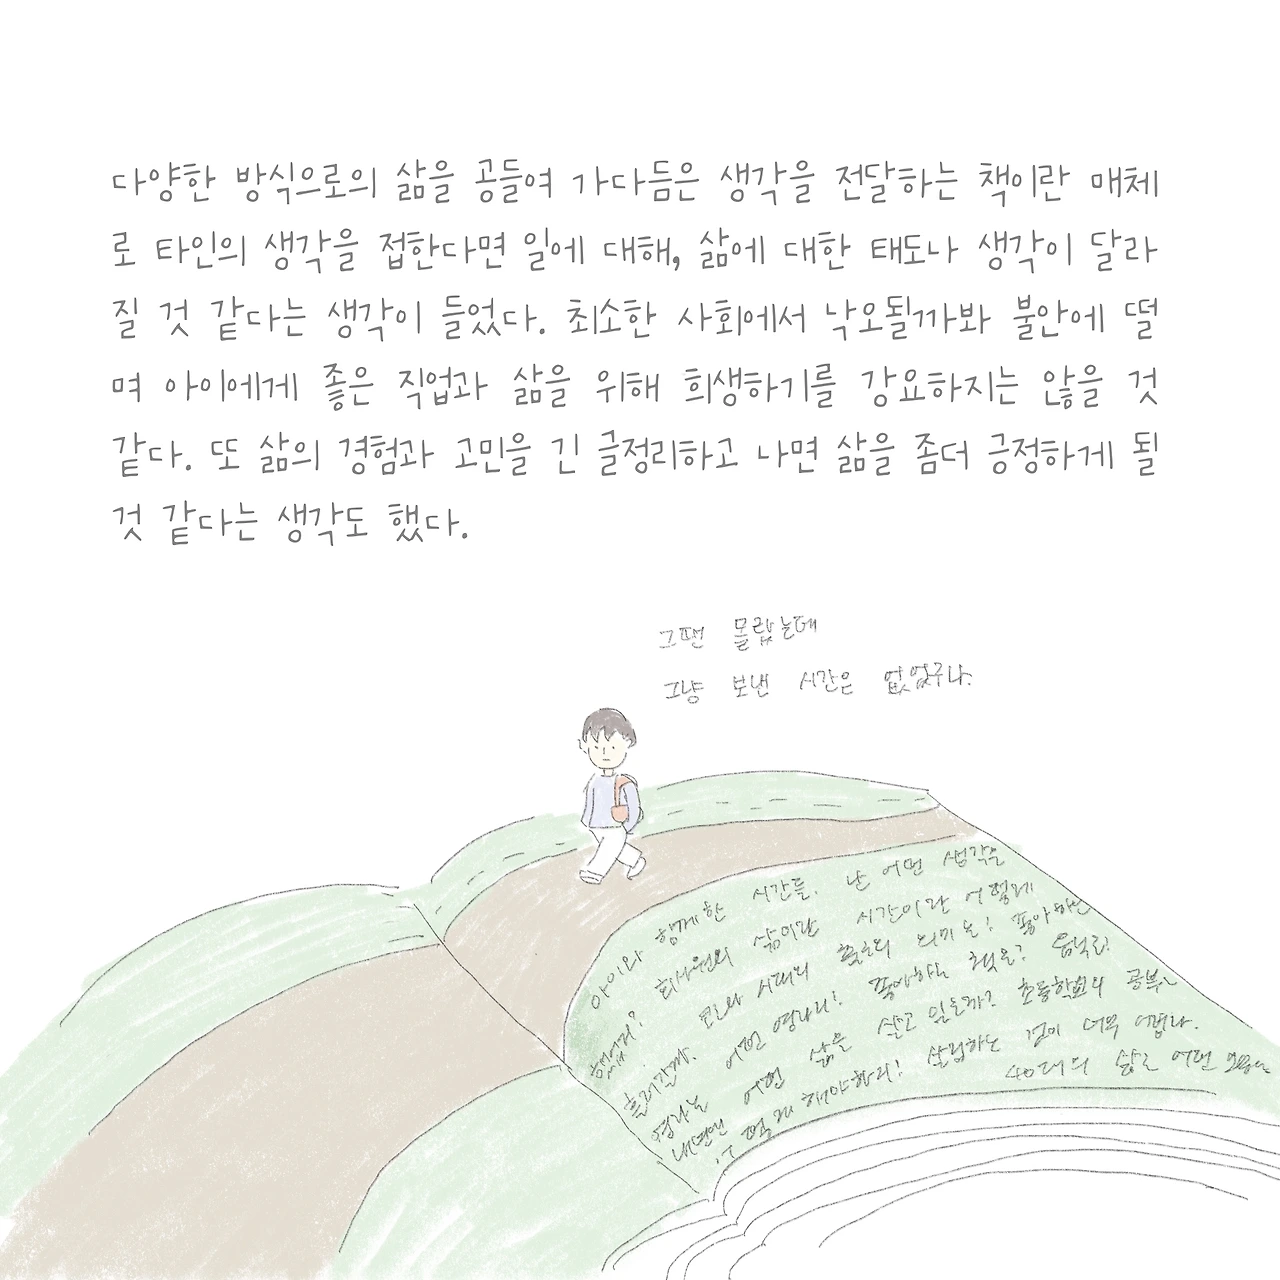 다양한 방식으로의 삶을 공들여 가다듬은 생각을 전달하는 책이란 매체
로 타인의 생각을 접한다면 일에 대해, 삶에 대한 태도나 생각이 달라
질 것 같다는 생각이 들었다. 최소한 사회에서 낙오될까봐 불안에 떨
며 아이에게 좋은 직업과 삶을 위해 희생하기를 강요하지는 않을 것
같다. 또 삶의 경험과 고민을 긴 글정리하고 나면 삶을 좀더 긍정하게 될
것 같다는 생각도 했다.
그땐 몰랐는데
그냥 보낸 시간은 없었구나.
아이와 함께한 시간들. 난 어떤 생각을
회사원의 삶이란 시간이란 어떻게
흘러갈까. 의미는! 좋아하는
어떤 엄마리! 좋아하는 책은? 음식은!
엄마는 어떤 삶을 살고 있을까? 초등학교의 공부는
살림하는 것이 너무 어렵다.
40대의 삶은 어떤